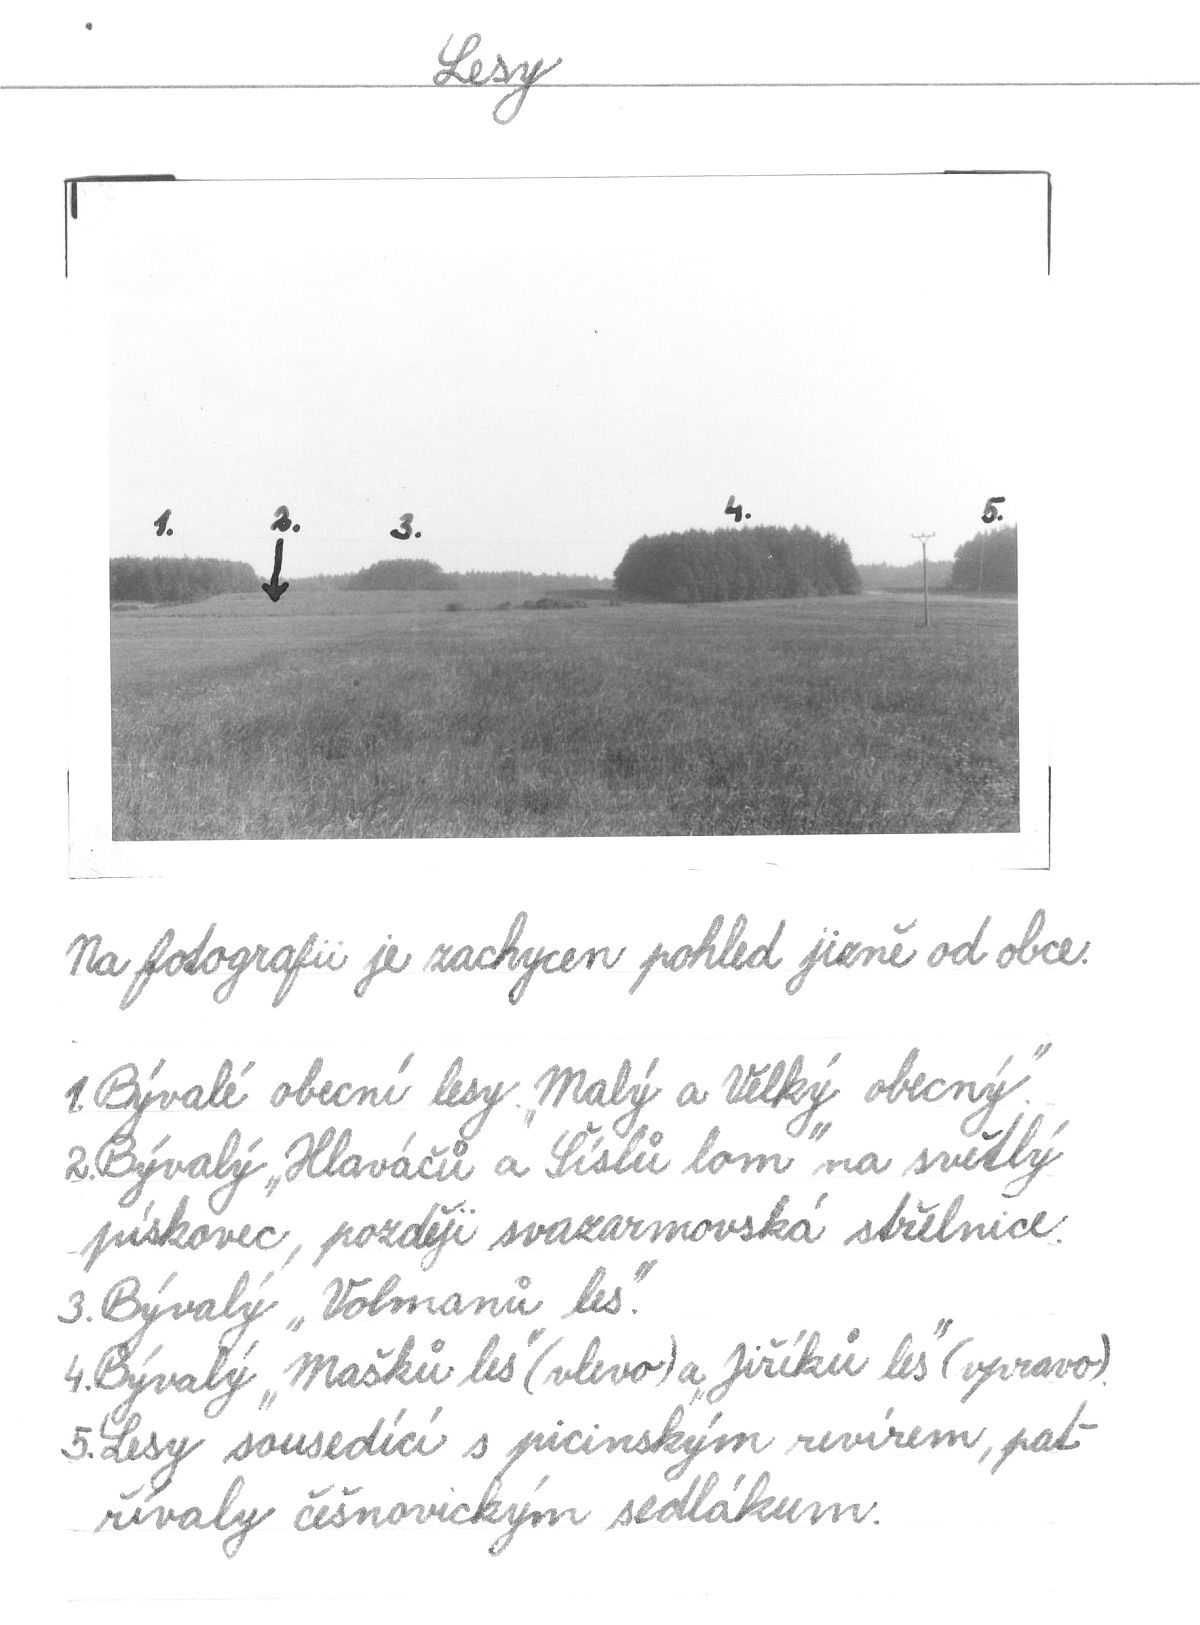 Lesy
1. 2. 3. 4. 5.
Na fotografii je zachycen pohled jižně od obce.
1. Bývalé obecní lesy „Malý a Velký obecný".
2. Bývalý „Hlaváčů a Číslů lom" na světlý
pískovec, později svazarmovská střelnice.
3. Bývalý „Volmanů les".
4. Bývalý „Mašků les" (vlevo) a „Jiříků les" (vpravo).
5. Lesy sousedící s picinským revírem, pat-
řívaly češnovickým sedlákum.